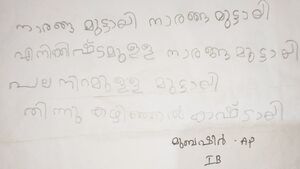 നാരങ്ങ മുട്ടായി നാരങ്ങ മുട്ടായി
എനിക്കിഷ്ടമുള്ള നാരങ്ങ മുട്ടായി
പല നിറമുള്ള മുട്ടായി
തിന്നു കഴിഞ്ഞാൽ
മുബഷീർ . AP
I B